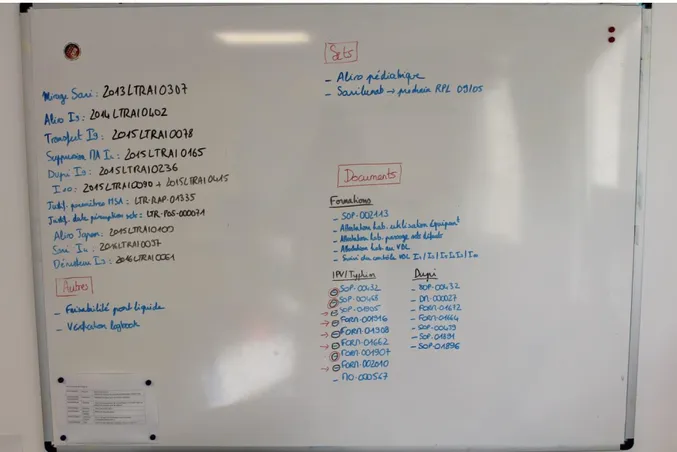 Mirage Sari : 2013LTRAI0307
Aliro I3 : 2014LTRAI0402
Transfect I3 : 2015LTRAI0078
Suppression MA I4 : 2015LTRAI0165
Dupi I3 : 2015LTRAI0236
2015LTRAI0090 + 2015LTRAI0415
Justif. paramètres MSA : LTR-RAP-01335
Justif. date péremption sets : LTR-POS-000071
Aliro Japon : 2015LTRAI0100
Sari I4 : 2016LTRAI0037
I3 : 2016LTRAI0061
Autres
- Faisabilité pont liquide
- Vérification logbook
Sets
- Aliro pédiatrique
- Sarilumab → prochain RPL 09/05
Documents
Formations
- SOP-002113
- Attestation hab. utilisation équipant
- Attestation hab. passage sets défauts
- Attestation hab. au VDL
- Suivi du contrôle VDL
IPV/Typhim
SOP-00432
SOP-00468
SOP-01905
→ FORM-001916
→ FORM-01908
→ FORM-01662
FORM-001907
→ FORM-002010
- MO-000547
Dupi
- SOP-00432
- DM-000027
- FORM-01672
- FORM-01664
- SOP-00479
- SOP-01891
- SOP-01896